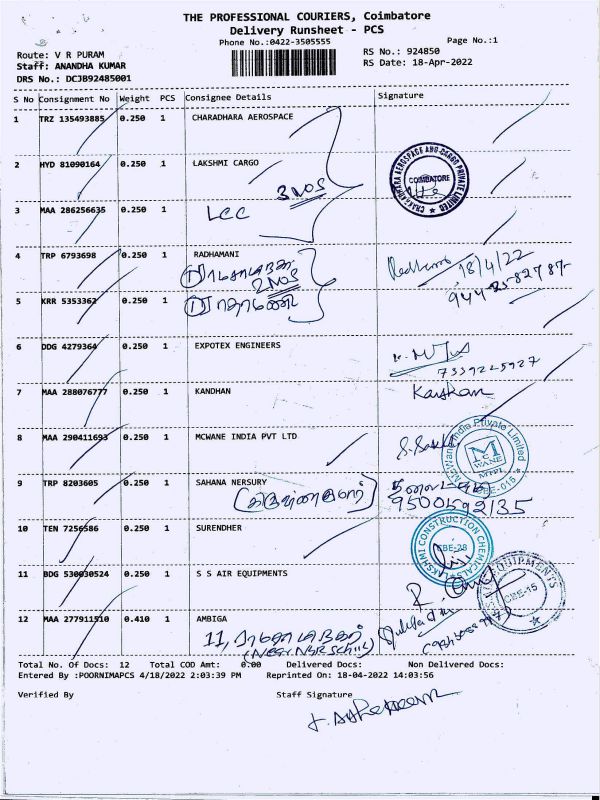 THE PROFESSIONAL COURIERS, Coimbatore
Delivery Runsheet - PCS
Phone No.:0422-3505555
Page No.:1
Route: V R PURAM
RS No.: 924850
Staff: ANANDHA KUMAR
RS Date: 18-Apr-2022
DRS No.: DCJB92485001
S No Consignment No Weight PCS Consignee Details Signature
1 TRZ 135493885 0.250 1 CHARADHARA AEROSPACE
2 HYD 81090164 0.250 1 LAKSHMI CARGO
3 NOS
COIMBATORE
3 MAA 286256635 0.250 1
LCC
4 TRP 6793698 0.250 1 RADHAMANI
18/4/22
2 NOS
5 KRR 5353362 0.250 1
6 DDG 4279364 0.250 1 EXPOTEX ENGINEERS
7339225927
7 MAA 288076777 0.250 1 KANDHAN
8 MAA 290411693 0.250 1 MCWANE INDIA PVT LTD
McWane India Private Limited
9 TRP 8203605 0.250 1 SAHANA NERSURY
9500592135
10 TEN 7256586 0.250 1 SURENDHER
LAKSHMI CONSTRUCTION CHEMICALS
CBE-28
11 BDG 530030524 0.250 1 S S AIR EQUIPMENTS
CBE-15
12 MAA 277911510 0.410 1 AMBIGA
11,
Total No. Of Docs: 12 Total COD Amt: 0.00 Delivered Docs: Non Delivered Docs:
Entered By :POORNIMAPCS 4/18/2022 2:03:39 PM Reprinted On: 18-04-2022 14:03:56
Verified By Staff Signature